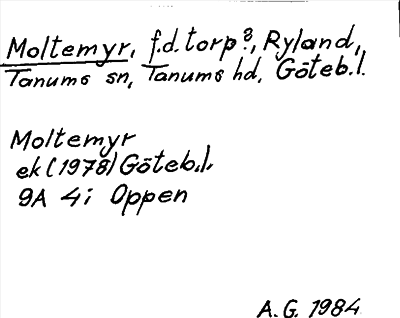 Moltemyr, f.d. torp?, Ryland,
Tanums sn, Tanums hd, Göteb.l.
Moltemyr
ek (1978) Göteb.l.
9A 4i Oppen
A.G. 1984